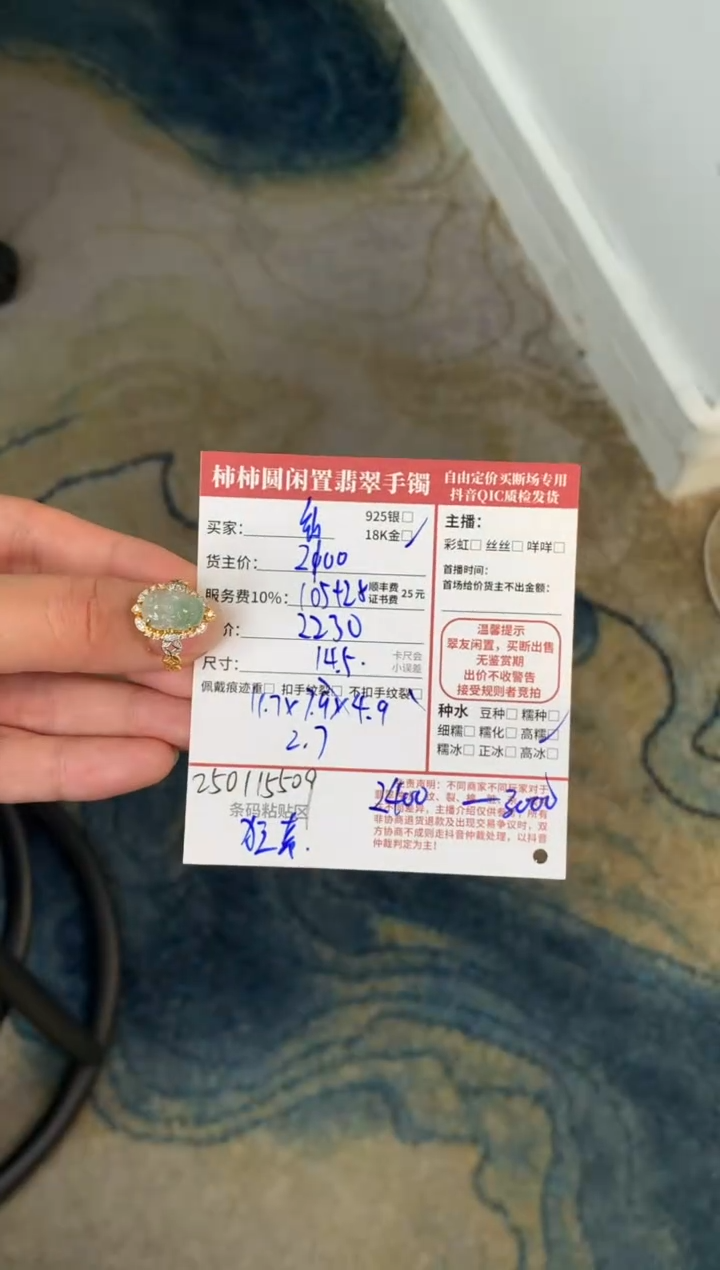 柿柿圆闲置翡翠手镯
自由定价买断场专用
抖音QIC质检发货
买家:
925银□
18K金□
货主价: 2100
服务费10%: 105+28 顺丰费 证书费 25元
介: 2230
尺寸: 14.5.
卡尺会
小误差
佩戴痕迹重□ 扣手纹裂□ 不扣手纹裂□
11.7x7.9x4.9
2.7
250115509
条码粘贴区
主播:
彩虹□ 丝丝□ 咩咩□
首播时间:
首场给价货主不出金额:
温馨提示
翠友闲置,买断出售
无鉴赏期
出价不收警告
接受规则者竞拍
种水 豆种□ 糯种□
细糯□ 糯化□ 高糯□
糯冰□ 正冰□ 高冰□
责声明:不同商家不同玩家对于
纹、裂、
2400 — 3000
差异,主播介绍仅供
所有
非协商退货退款及出现交易争议时,双
方协商不成则走抖音仲裁处理,以抖音
仲裁判定为主!